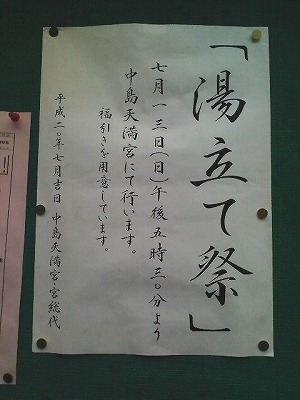 「湯立て祭」
七月一三日(日)午後五時三〇分より
中島天満宮にて行います。
福引きを用意しています。
平成二〇年七月吉日 中島天満宮・宮総代